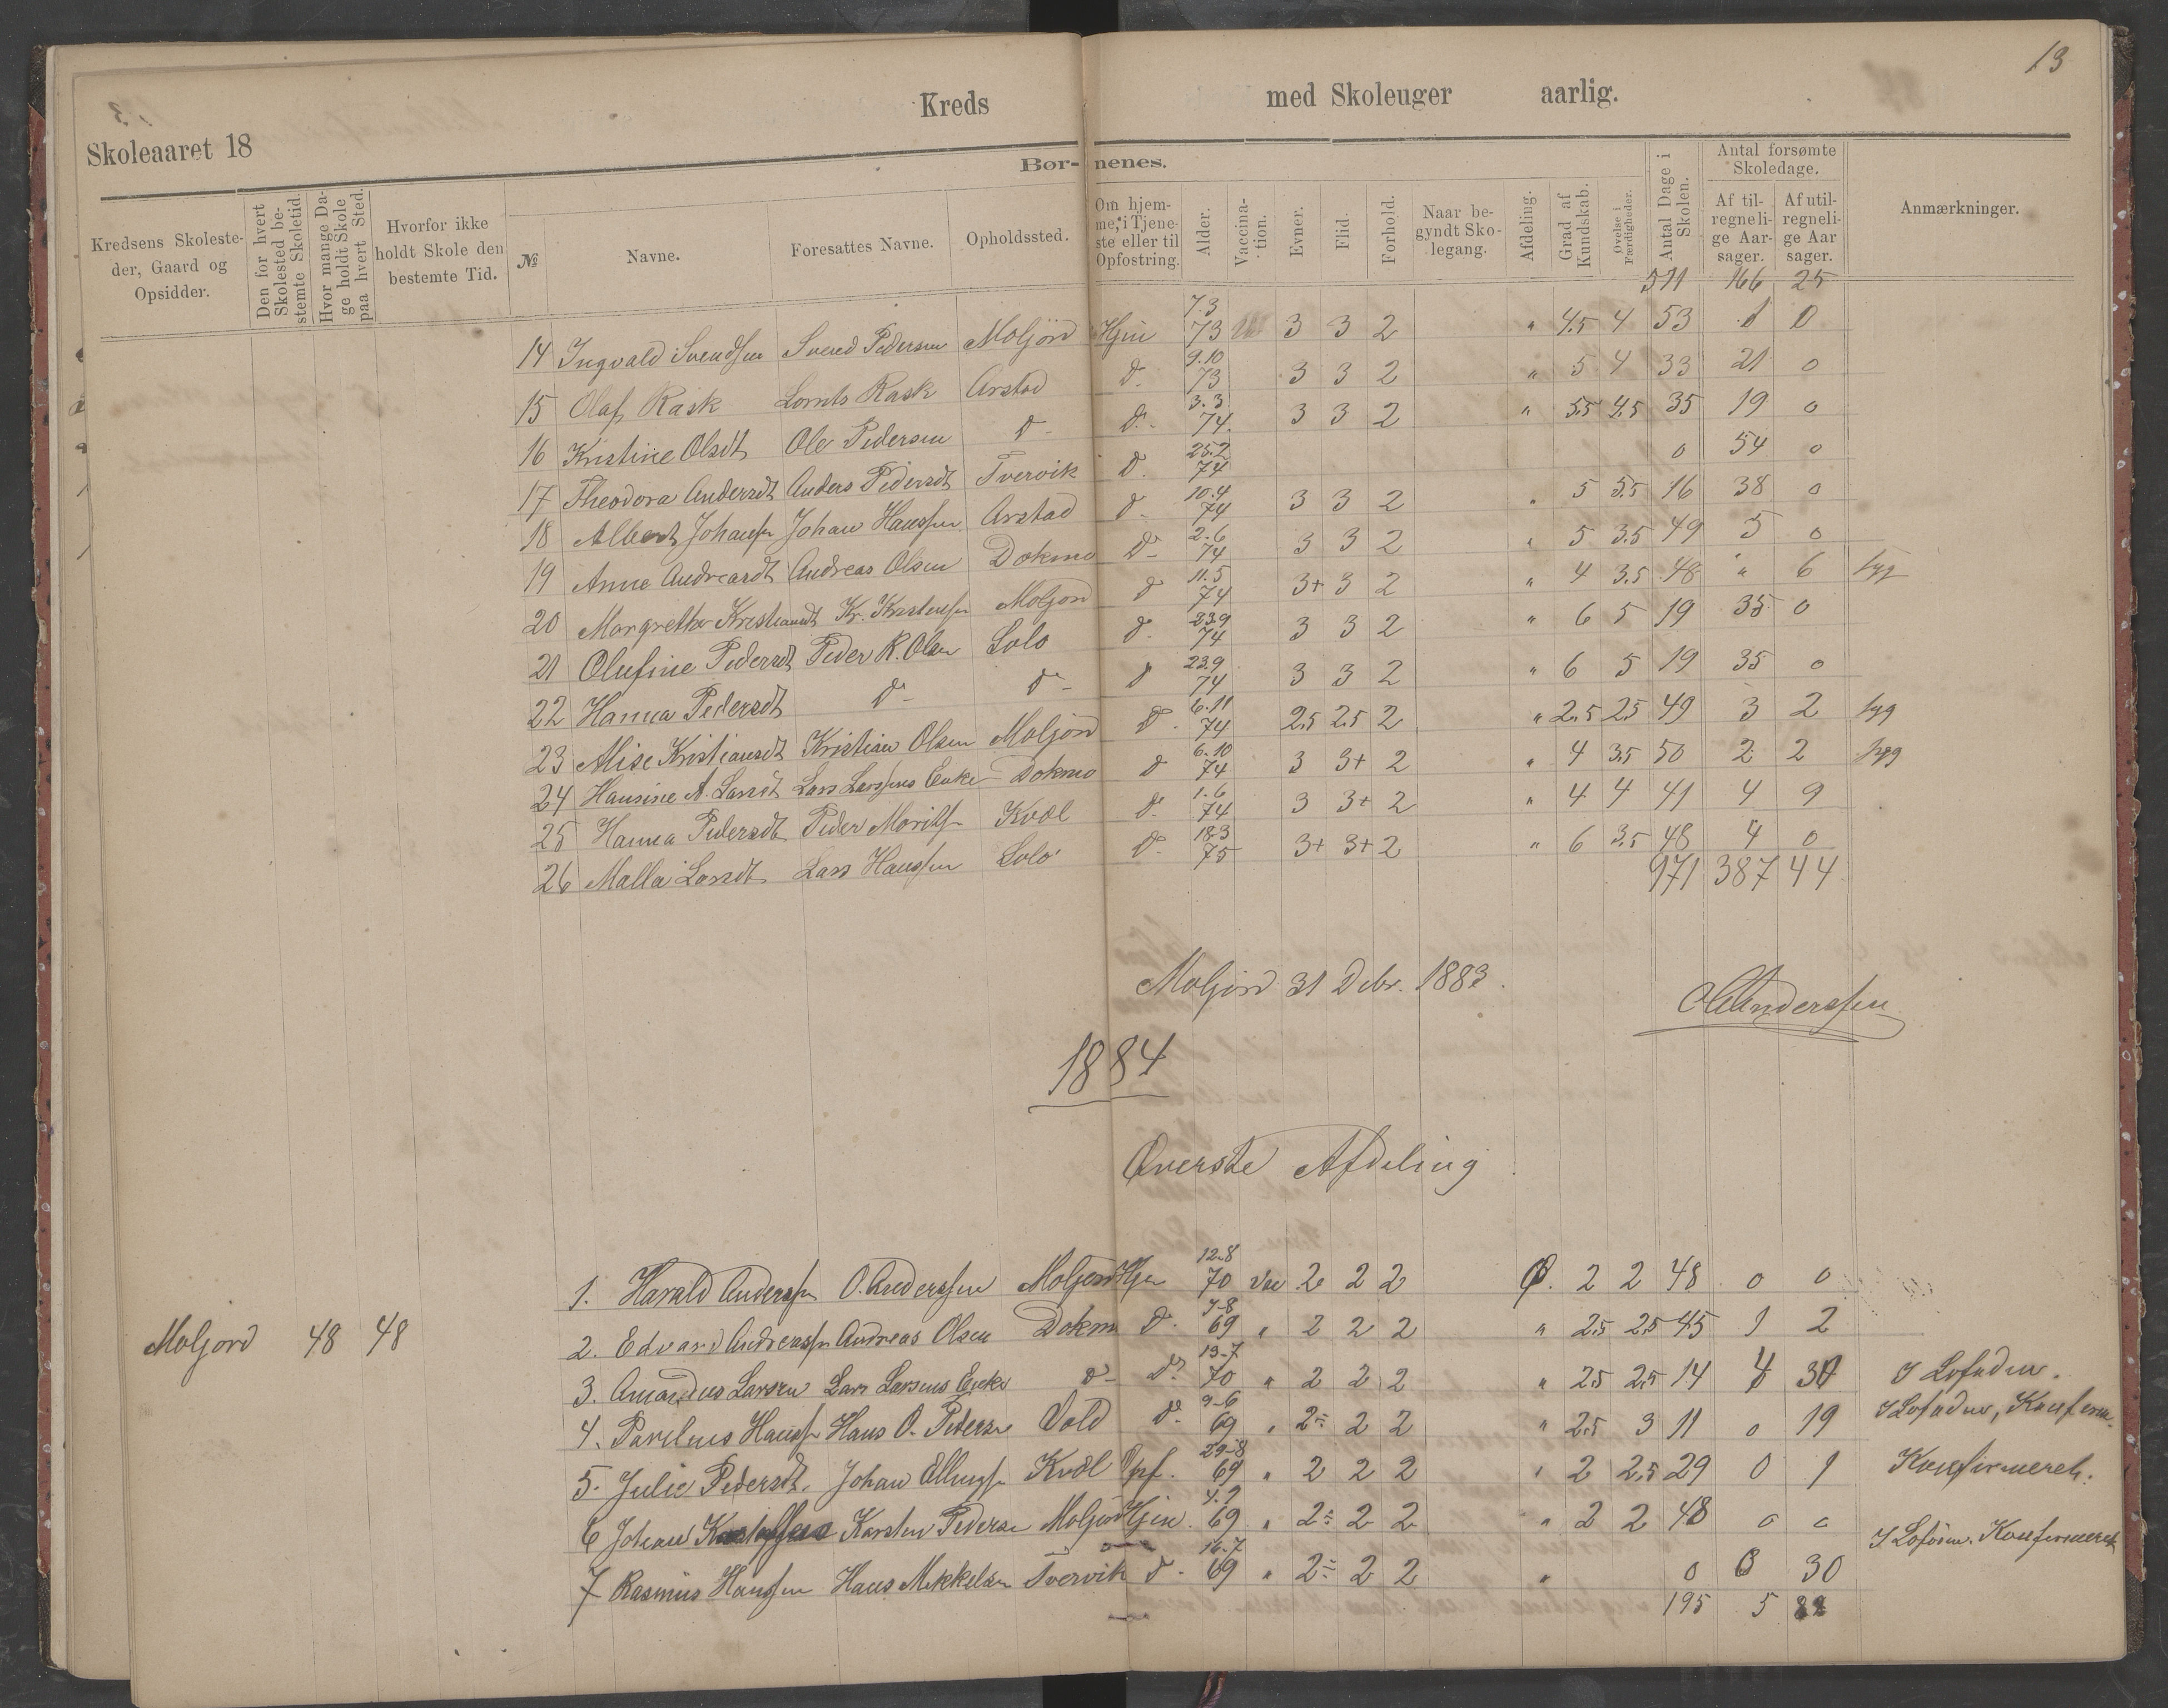 13
Kreds med Skoleuger aarlig.
Skoleaaret 18
Bør- nenes.
Kredsens Skolesteder, Gaard og Opsidder.
Den for hvert Skolested bestemte Skoletid.
Hvor mange Dage holdt Skole paa hvert Sted.
Hvorfor ikke holdt Skole den bestemte Tid.
№
Navne.
Foresattes Navne.
Opholdssted.
Om hjemme, i Tjeneste eller til Opfostring.
Alder.
Vaccination.
Evner.
Flid.
Forhold.
Naar begyndt Skolegang.
Afdeling.
Grad af Kundskab.
Øvelse i Færdigheder.
Antal Dage i Skolen.
Antal forsømte Skoledage.
Af tilregnelige Aarsager.
Af utilregnelige Aarsager.
Anmærkninger.
511 166 25
14 Ingvald Svendsen Svend Pedersen Moljord Hjm 7.3 73 3 3 2 " 4.5 4 53 1 0
15 Olaf Rask Lornts Rask Arstad d- 9.10 73 3 3 2 " 5 4 33 21 0
16 Kristine Olsdt Ole Pedersen d- d- 3.3 74. 3 3 2 " 5.5 4.5 35 19 0
17 Theodora Andersdt Anders Pedersdt Tvervik d- 25.2 74 0 54 0
18 Albert Johansen Johan Hanssen Arstad d- 10.4 74 3 3 2 " 5 5.5 16 38 0
19 Anne Andreasdt Andreas Olsen Dokmo d- 2.6 74 3 3 2 " 5 3.5 49 5 0
20 Margrethe Kristiansdt Kr. Kristensen Moljord d 11.5 74 3+ 3 2 " 4 3.5 48 " 6 syg
21 Olufine Pedersdt Peder R. Olsen Solo d- 23.9 74 3 3 2 " 6 5 19 35 0
22 Hanna Pedersdt d- d- d 23.9 74 3 3 2 " 6 5 19 35 0
23 Alise Kristiansdt Kristian Olsen Moljord d- 6.11 74 2.5 2.5 2 " 2.5 2.5 49 3 2 syg
24 Hansine A. Larsdt Lars Larssens Enke Dokmo d 6.10 74 3 3+ 2 " 4 3.5 50 2 2 syg
25 Hanna Pedersdt Peder Moritsen Kvæl d- 1.6 74 3 3+ 2 " 4 4 41 4 9
26 Malla Larsdt Lars Hanssen Solo d- 18.3 75 3+ 3+ 2 " 6 3.5 48 4 0
971 387 44
Moljord 31 Debr. 1883.
O Anderssen
1884
Øverste Afdeling
1. Harald Anderssen O. Anderssen Moljord Hjm 12-8 70 Vac 2 2 2 Ø. 2 2 48 0 0
2. Edvard Andreassen Andreas Olsen Dokmo d- 7-8 69 " 2 2 2 " 2.5 2.5 45 1 2
Moljord 48 48
3. Amandus Larsen Lars Larsens Enke d- d- 13-7 70 " 2 2 2 " 2.5 2.5 14 4 30 I Lofoden.
4. Paulus Hanssen Hans O. Pedersen Vold d- 9-6 69 " 2- 2 2 " 2.5 3 11 0 19 I Lofoden, Konfirm.
5. Julie Pedersdt. Johan Ellingsen Kvæl Opf. 29-8 69 " 2 2 2 " 2 2.5 29 0 1 Konfirmeret.
6 Johan Karstensen Karsten Pedersen Moljord Hjm. 4.9 69 " 2- 2 2 " 2 2 48 0 0
7 Rasmus Hansen Hans Mikkelsen Tvervik d- 16-7 69 " 2- 2 2 " 0 0 30 I Lofoten. Konfirmeret
195 5 82